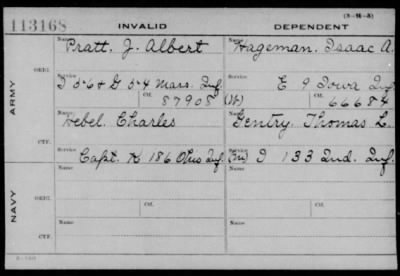 (3-14-3)
113168
INVALID
DEPENDENT
ARMY
ORIG.
Name
Pratt, J. Albert
Name
Hageman, Isaac A.
Service
I 56 & G 54 Mass. Inf.
Service
E 9 Iowa Inf.
Ctf.
87908
(W)
Ctf.
66684
CTF.
Name
Hebel, Charles
Name
Gentry, Thomas L.
Service
Capt. K 186 Ohio Inf.
Service
(M) I 133 Ind. Inf.
NAVY
ORIG.
Name
Name
Ctf.
Ctf.
Service
Service
CTF.
Name
Name
Service
Service